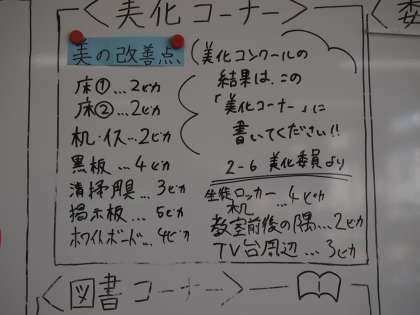 美化コーナー
美の改善点
美化コンクールの
結果は、この
「美化コーナー」に
書いてください!!
2-6 美化委員より
床①…2ピカ
床②…2ピカ
机・イス…2ピカ
黒板…4ピカ
清掃用具…3ピカ
掲示板…5ピカ
ホワイトボード…4ピカ
生徒ロッカー
机…4ピカ
教室前後の隅…2ピカ
TV台周辺…3ピカ
図書コーナー
委